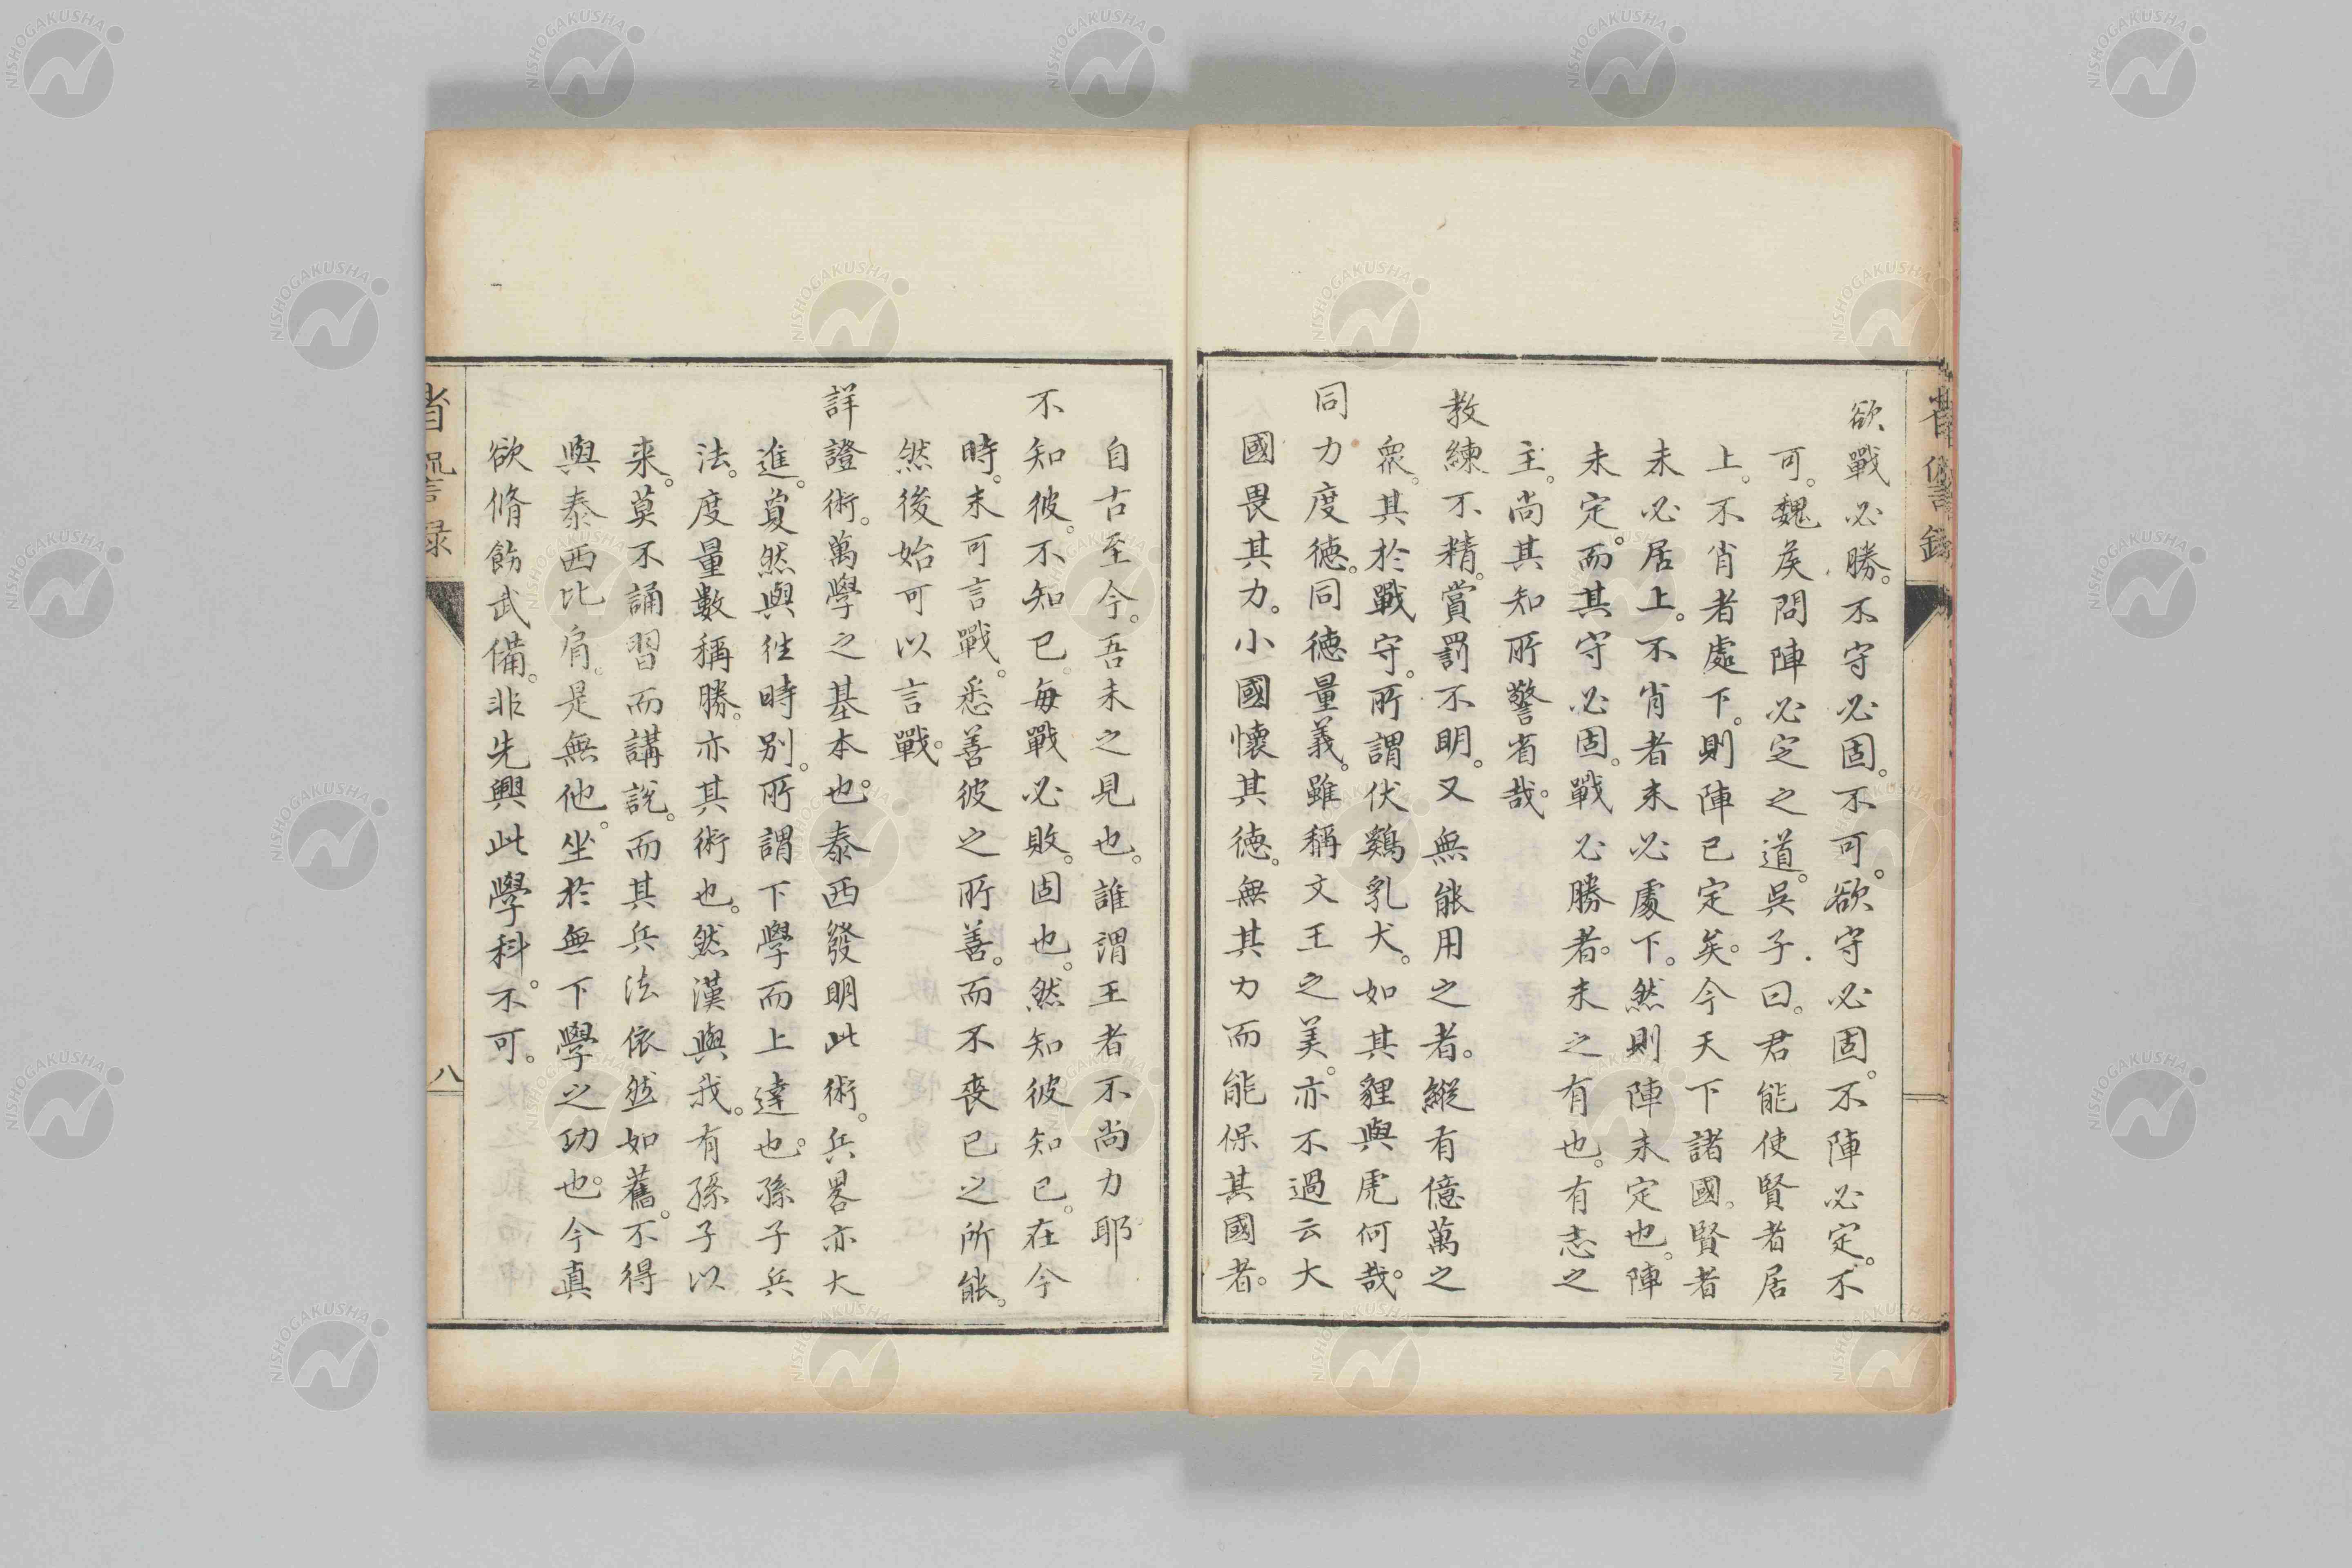 省諐録
欲戰必勝。不守必固。不可。欲守必固。不陣必定。不
可。魏矦問陣必定之道。吳子曰。君能使賢者居
上。不肖者處下。則陣已定矣。今天下諸國。賢者
未必居上。不肖者未必處下。然則陣未定也。陣
未定。而其守必固。戰必勝者。未之有也。有志之
主。尚其知所警省哉。
教練不精。賞罰不明。又無能用之者。縱有億萬之
衆。其於戰守。所謂伏鷄乳犬。如其貍與虎何哉。
同力度徳。同徳量義。雖稱文王之美。亦不過云大
國畏其力。小國懷其徳。無其力而能保其國者。
自古至今。吾未之見也。誰謂王者不尚力耶
不知彼。不知已。每戰必敗。固也。然知彼知已。在今
時。未可言戰。悉善彼之所善。而不喪已之所能。
然後始可以言戰。
詳證術。萬學之基本也。泰西發明此術。兵畧亦大
進。夐然與往時別。所謂下學而上達也。孫子兵
法。度量數稱勝。亦其術也。然漢與我。有孫子以
来。莫不誦習而講說。而其兵法依然如舊。不得
與泰西比肩。是無他。坐於無下學之功也。今真
欲脩飭武備。非先興此學科。不可。
省諐録
八
NISHOGAKUSHA